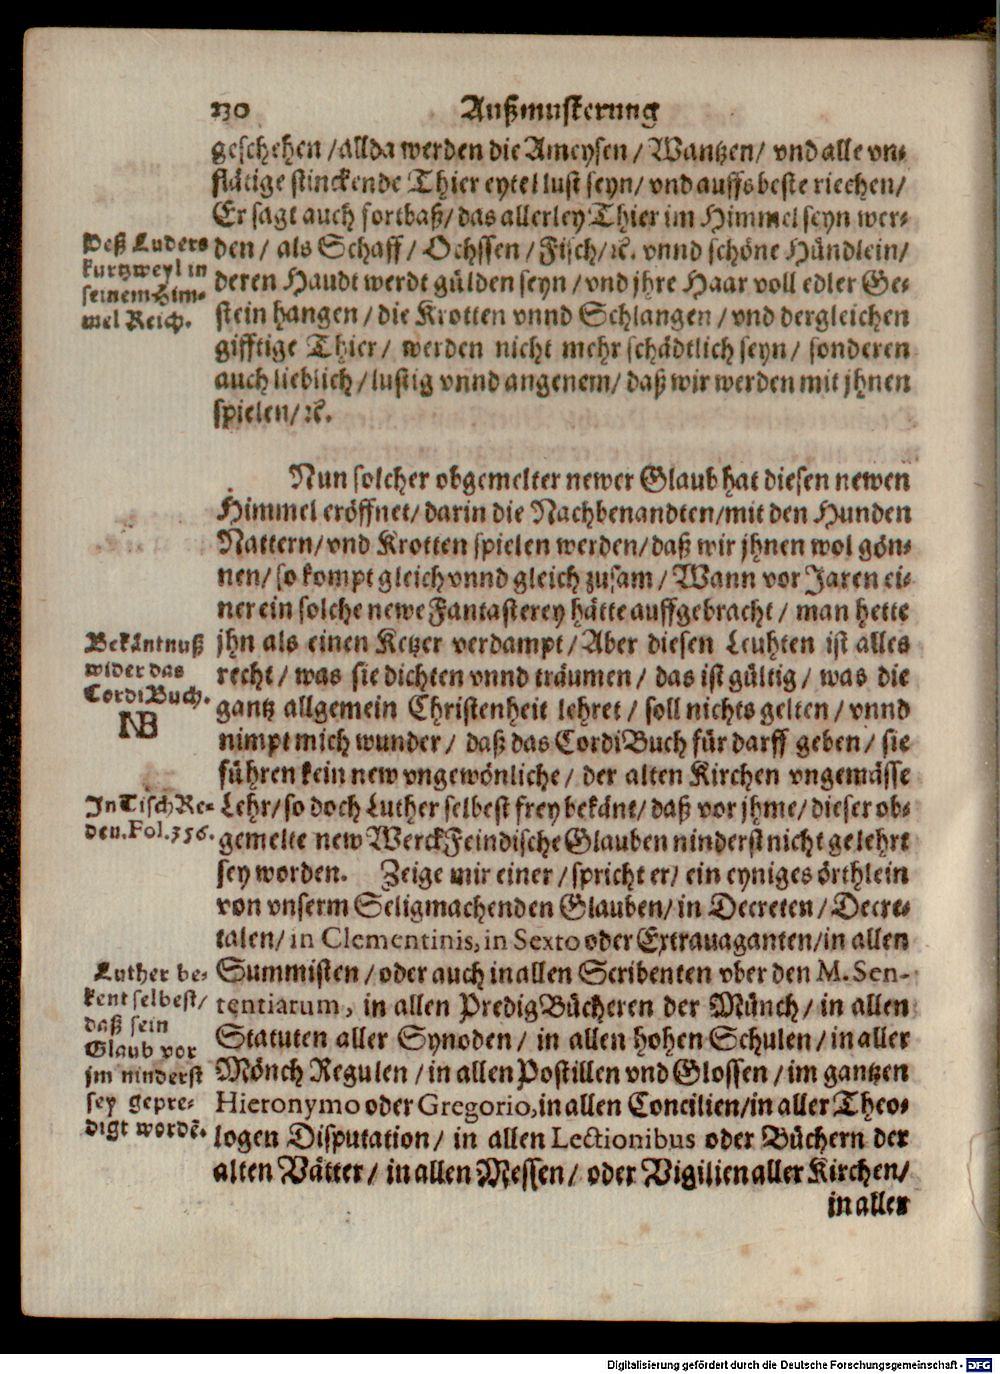 130 Außmusterung
geschehen / allda werden die Ameysen / Wantzen / vnd alle vn-
flätige stinckende Thier eytel lust seyn / vnd auffs beste riechen /
Er sagt auch fortbaß / das allerley Thier im Himmel seyn wer-
den / als Schaff / Ochssen / Fisch / ꝛc. vnnd schöne Hündlein /
deren Haudt werdt gülden seyn / vnd jhre Haar voll edler Ge-
stein hangen / die Krotten vnnd Schlangen / vnd dergleichen
gifftige Thier / werden nicht mehr schädtlich seyn / sonderen
auch lieblich / lustig vnnd angenem / daß wir werden mit jhnen
spielen / ꝛc.
Deß Luders
kurtzweyl in
seinem Him-
mel Reich.
Nun solcher obgemelter newer Glaub hat diesen newen
Himmel eröffnet / darin die Nachbenandten / mit den Hunden
Nattern / vnd Krotten spielen werden / daß wir jhnen wol gön-
nen / so kompt gleich vnnd gleich zusam / Wann vor Jaren ei-
ner ein solche newe Fantasterey hätte auffgebracht / man hette
jhn als einen Ketzer verdampt / Aber diesen Leuhten ist alles
recht / was sie dichten vnnd träumen / das ist gültig / was die
gantz allgemein Christenheit lehret / soll nichts gelten / vnnd
nimpt mich wunder / daß das CordiBuch für darff geben / sie
führen kein new vngewönliche / der alten Kirchen vngemässe
Lehr / so doch Luther selbest frey bekänt / daß vor jhme / dieser ob-
gemelte new WerckFeindische Glauben ninderst nicht gelehrt
sey worden. Zeige mir einer / spricht er / ein eyniges örthlein
von vnserm Seligmachenden Glauben / in Decreten / Decre-
talen / in Clementinis, in Sexto oder Extrauaganten / in allen
Summisten / oder auch in allen Scribenten vber den M. Sen-
tentiarum, in allen PredigBücheren der Münch / in allen
Statuten aller Synoden / in allen hohen Schulen / in aller
Mönch Regulen / in allen Postillen vnd Glossen / im gantzen
Hieronymo oder Gregorio, in allen Concilien / in aller Theo-
logen Disputation / in allen Lectionibus oder Büchern der
alten Vätter / in allen Messen / oder Vigilien aller Kirchen /
in aller
Bekäntnuß
wider das
CordiBuch.
NB
In TischRe-
den. Fol. 356.
Luther be-
kent selbest /
daß sein
Glaub vor
jm ninderst
sey gepre-
digt wordē.
Digitalisierung gefördert durch die Deutsche Forschungsgemeinschaft - DFG